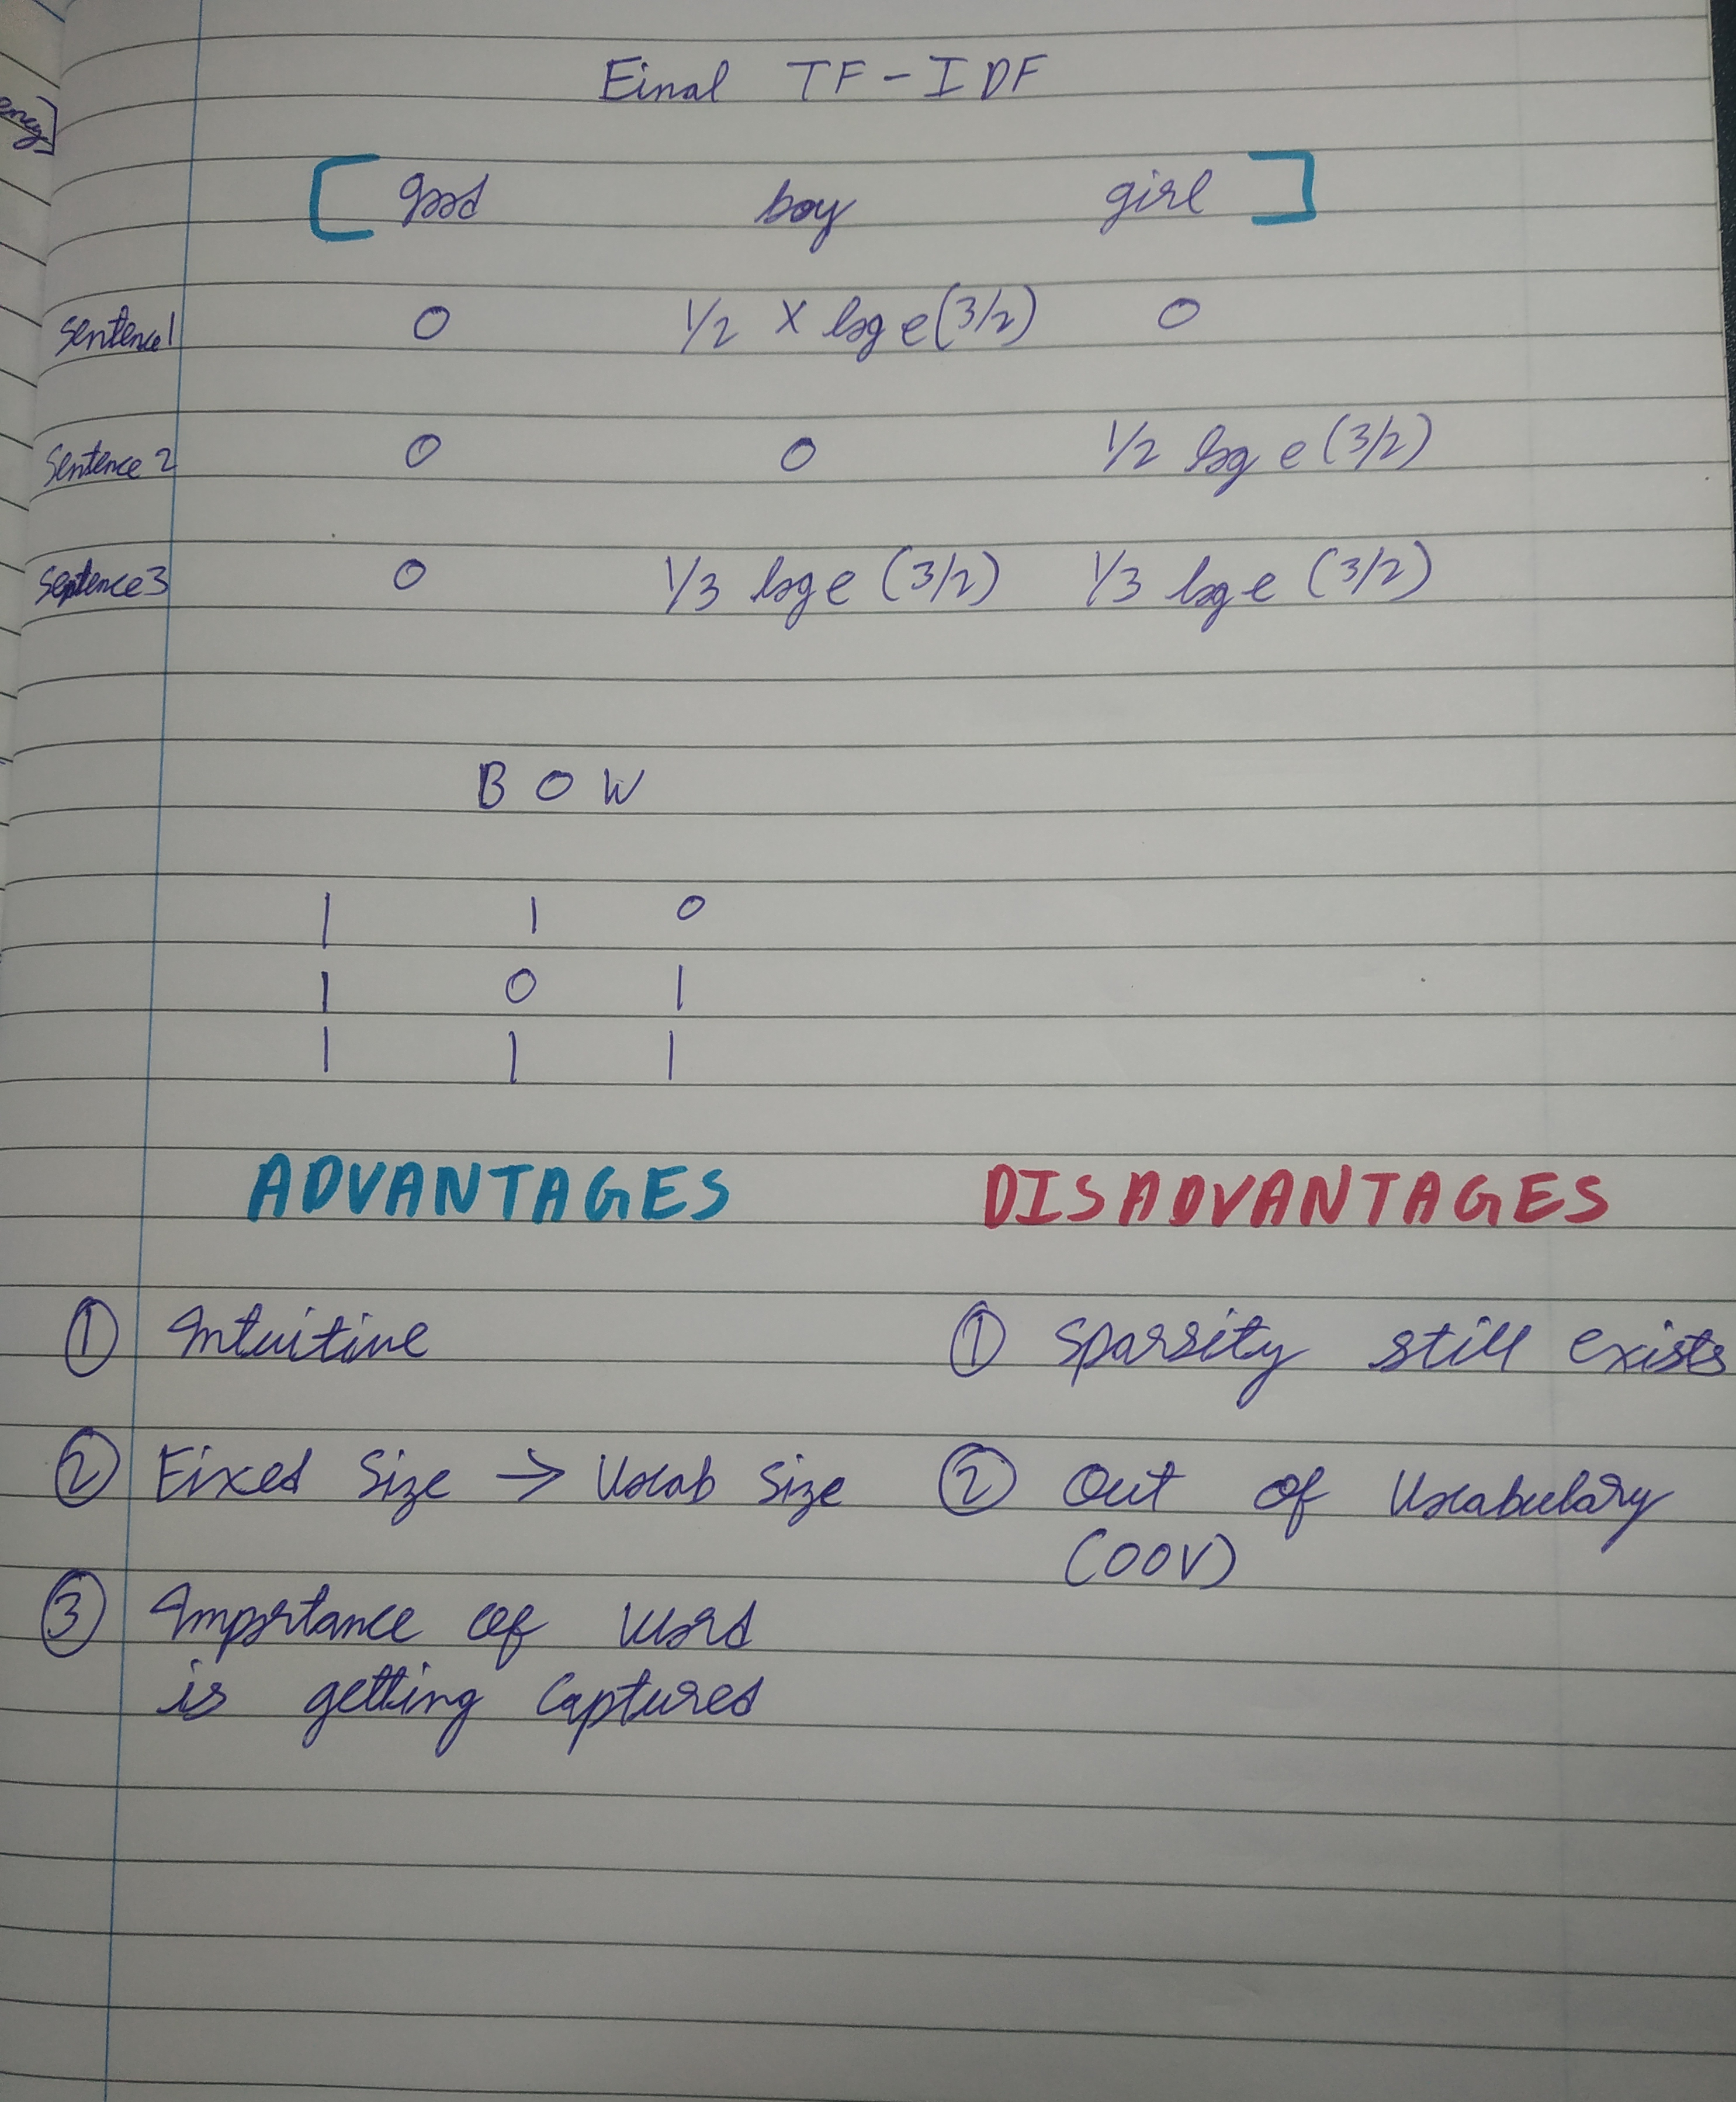 Final TF-IDF
ency]
[ good boy girl ]
Sentence1 0 1/2 X loge(3/2) 0
Sentence 2 0 0 1/2 log e (3/2)
Sentence3 0 1/3 loge (3/2) 1/3 loge (3/2)
BOW
1 1 0
1 0 1
1 1 1
ADVANTAGES DISADVANTAGES
① Intuitive ① Sparsity still exists
② Fixed Size → Vocab Size ② Out of Vocabulary
(OOV)
③ Importance of Word
is getting Captured